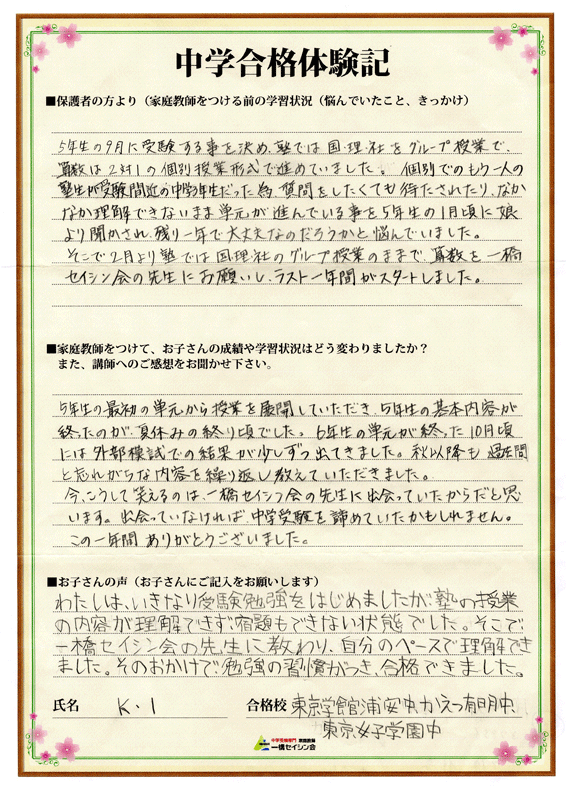 中学合格体験記
■保護者の方より(家庭教師をつける前の学習状況(悩んでいたこと、きっかけ)
5年生の9月に受験する事を決め、塾では国・理・社をグループ授業で、
算数は2対1の個別授業形式で進めていました。個別でのもう一人の
塾生が受験間近の中学3年生だった為、質問をしたくても待たされたり、なか
なか理解できないまま単元が進んでいる事を5年生の1月頃に娘
より聞かされ、残り一年で大丈夫なのだろうかと悩んでいました。
そこで2月より塾では国・理・社のグループ授業のままで、算数を一橋
セイシン会の先生にお願いし、ラスト一年間がスタートしました。
■家庭教師をつけて、お子さんの成績や学習状況はどう変わりましたか?
また、講師へのご感想をお聞かせ下さい。
5年生の最初の単元から授業を展開していただき、5年生の基本内容が
終ったのが、夏休みの終り頃でした。6年生の単元が終った10月頃
には外部模試での結果が少しずつ出てきました。秋以降も過去問
と忘れがちな内容を繰り返し教えていただきました。
今、こうして笑えるのは、一橋セイシン会の先生に出会っていたからだと思
います。出会っていなければ、中学受験を諦めていたかもしれません。
この一年間ありがとうございました。
■お子さんの声(お子さんにご記入をお願いします)
わたしは、いきなり受験勉強をはじめましたが、塾の授業
の内容が理解できず宿題もできない状態でした。そこで
一橋セイシン会の先生に教わり、自分のペースで理解でき
ました。そのおかげで勉強の習慣がつき、合格できました。
氏名 K・I 合格校 東京学館浦安中、かえつ有明中、
東京女子学園中
中学受験専門 家庭教師
一橋セイシン会